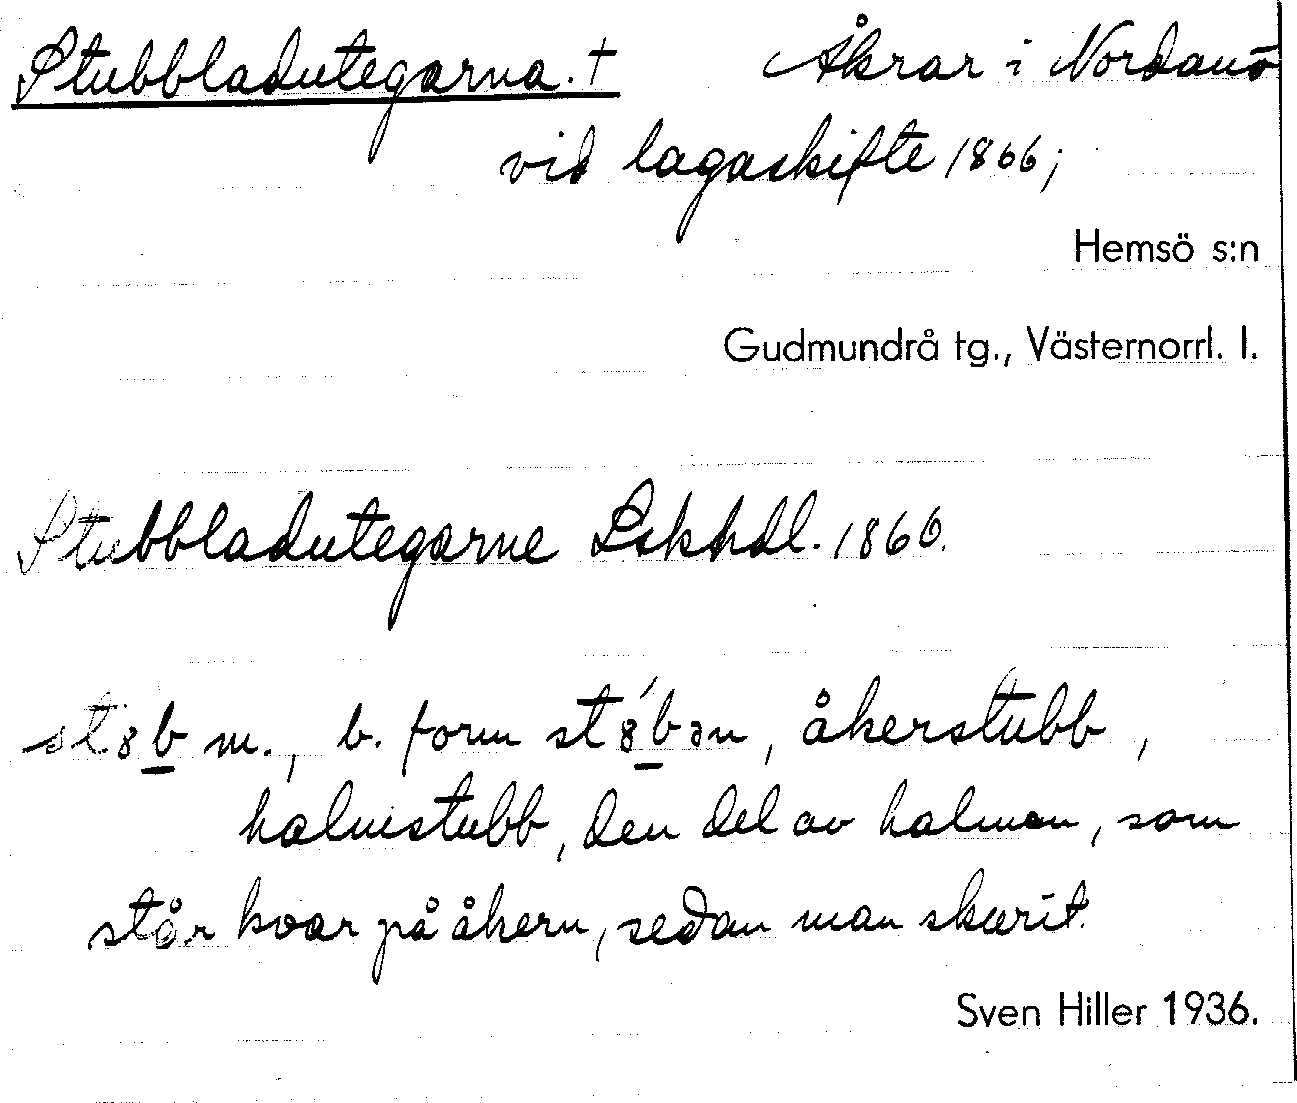 Stubbladutegarna. † Åkrar i Nordanö
vid lagaskifte 1866;
Hemsö s:n
Gudmundrå tg., Västernorrl. l.
Stubbladutegarne Lskhdl. 1866.
st8b m., b. form st8́bən, åkerstubb,
halmstubb, den del av halmen, som
står kvar på åkern, sedan man skurit.
Sven Hiller 1936.